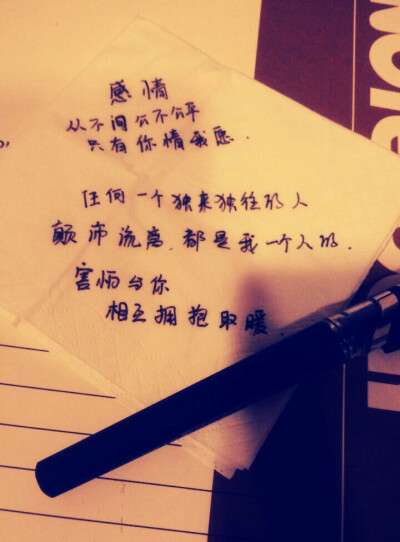 感情
从不问公不公平
只有你情我愿.
任何一个独来独往的人
颠沛流离.都是我一个人的.
害怕与你
相互拥抱取暖.